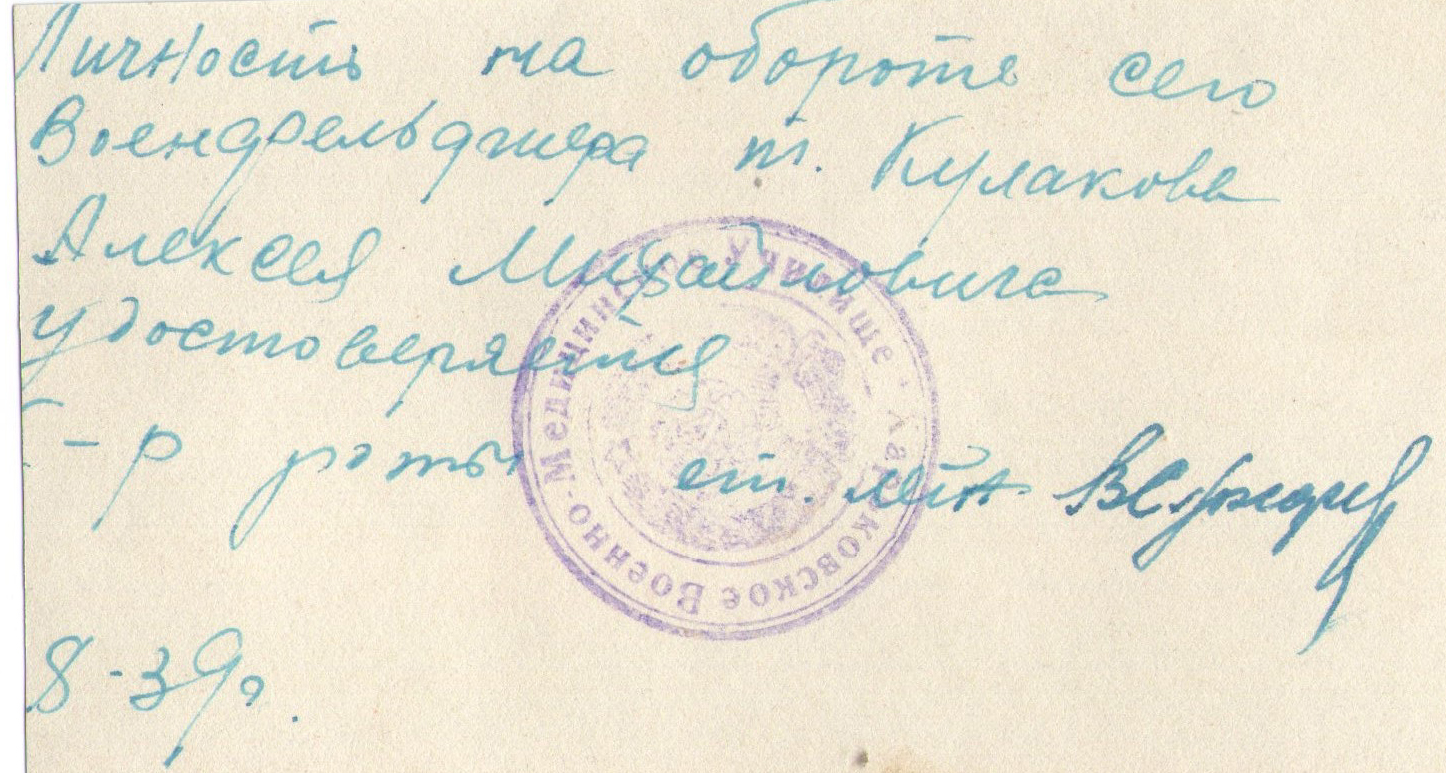 Личность на обороте сего
Военфельдшера т. Кулакова
Алексея Михайловича
удостоверяется
К-р роты ст. лейт.
8-39г.
Харьковское Военно-Медицинское Училище